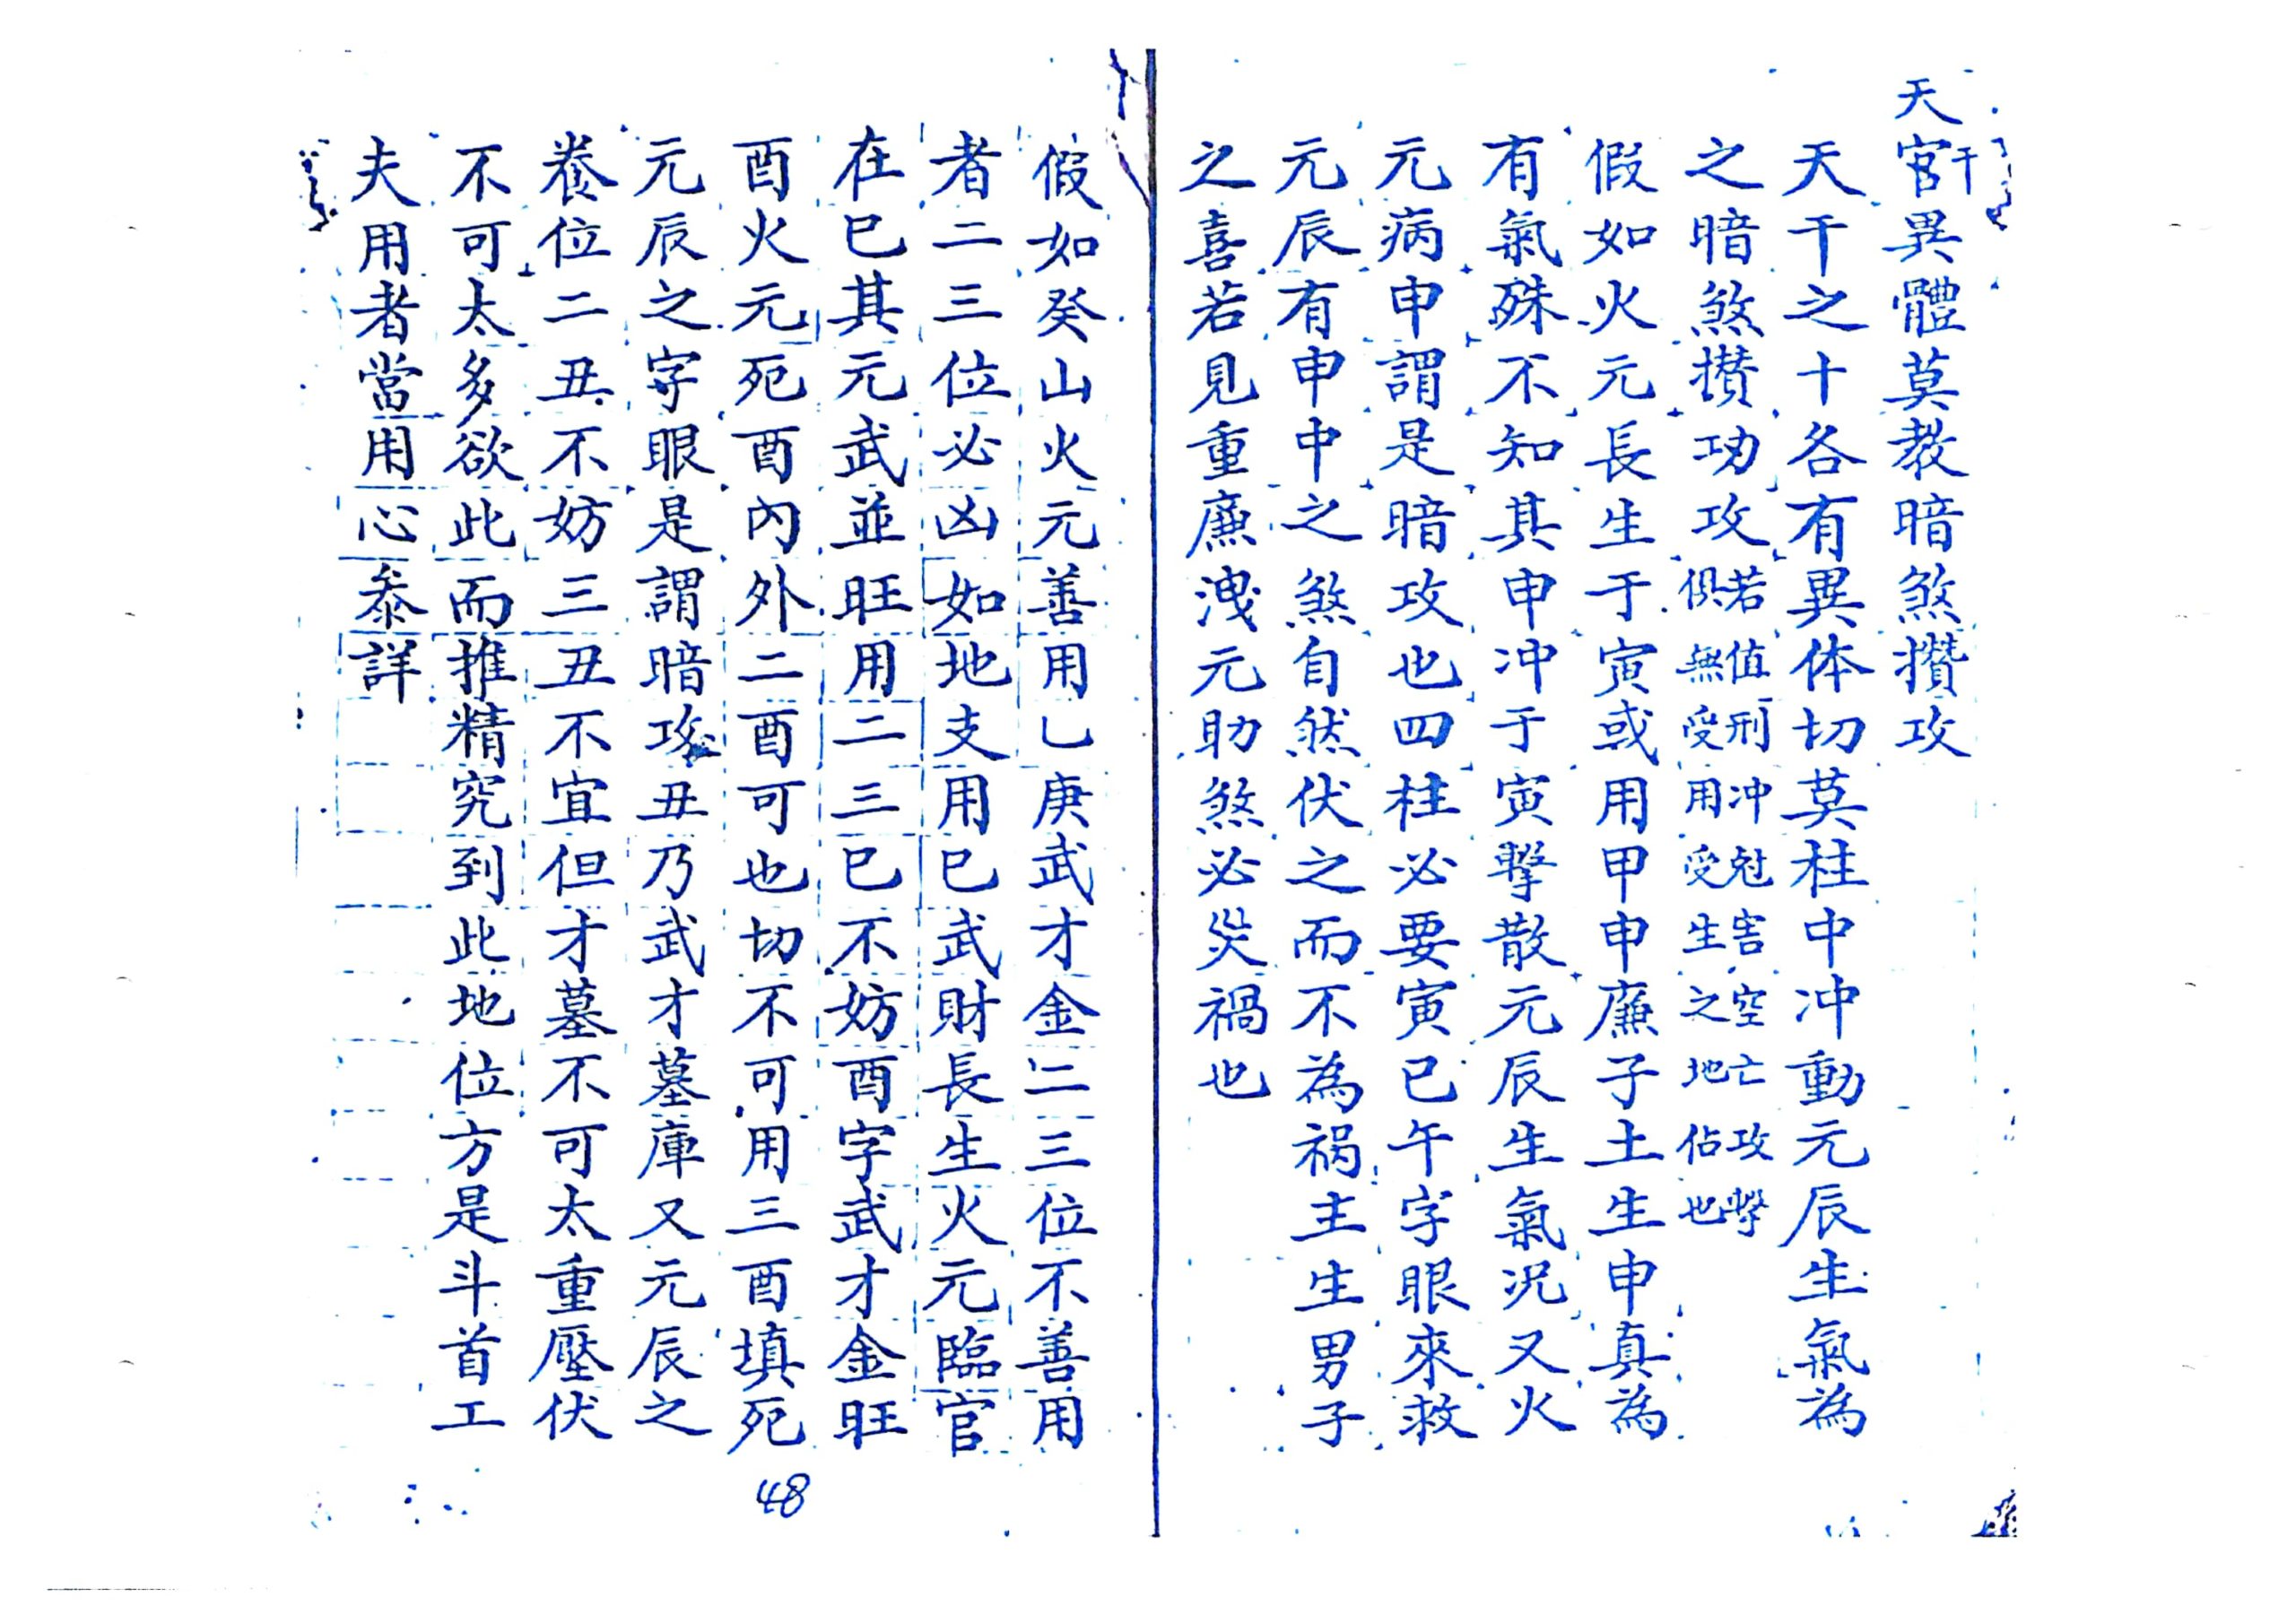 天官干異體莫教暗煞攢攻
天干之十各有異体切莫柱中冲動元辰生氣為
之暗煞攢功攻若值刑冲尅害空亡攻擊俱無受用受生之地佔也
假如火元長生于寅或用甲申廉子土生申真為
有氣殊不知其申冲于寅擊散元辰生氣况又火
元病申謂是暗攻也四柱必要寅巳午字眼來救
元辰有申中之煞自然伏之而不為禍主生男子
之喜若見重廉洩元助煞必災禍也
假如癸山火元善用乚庚武才金二三位不善用
者二三位必凶如地支用巳武財長生火元臨官
在巳其元武並旺用二三巳不妨酉字武才金旺
酉火元死酉內外二酉可也切不可用三酉填死
元辰之字眼是謂暗攻丑乃武才墓庫又元辰之
養位二丑不妨三丑不宜但才墓不可太重壓伏
不可太多欲此而推精究到此地位方是斗首工
夫用者當用心叅詳
48